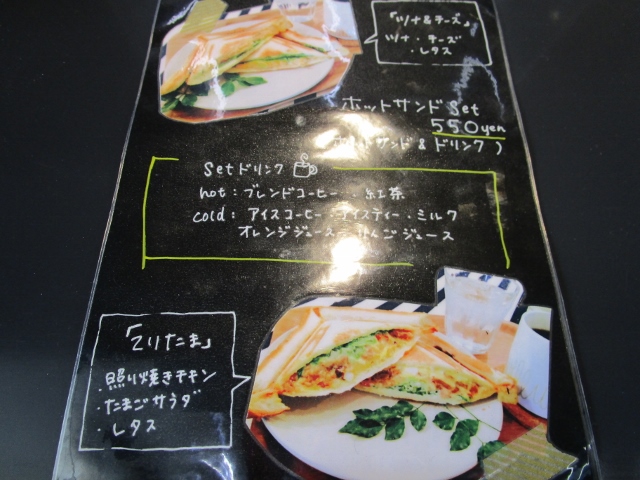 「ツナ&チーズ」
ツナ・チーズ
・レタス
ホットサンドSet
550yen
サンド&ドリンク)
Setドリンク
hot:ブレンドコーヒー・紅茶
cold:アイスコーヒー・アイスティー・ミルク
オレンジジュース・りんごジュース
「てりたま」
・照り焼きチキン
・たまごサラダ
・レタス